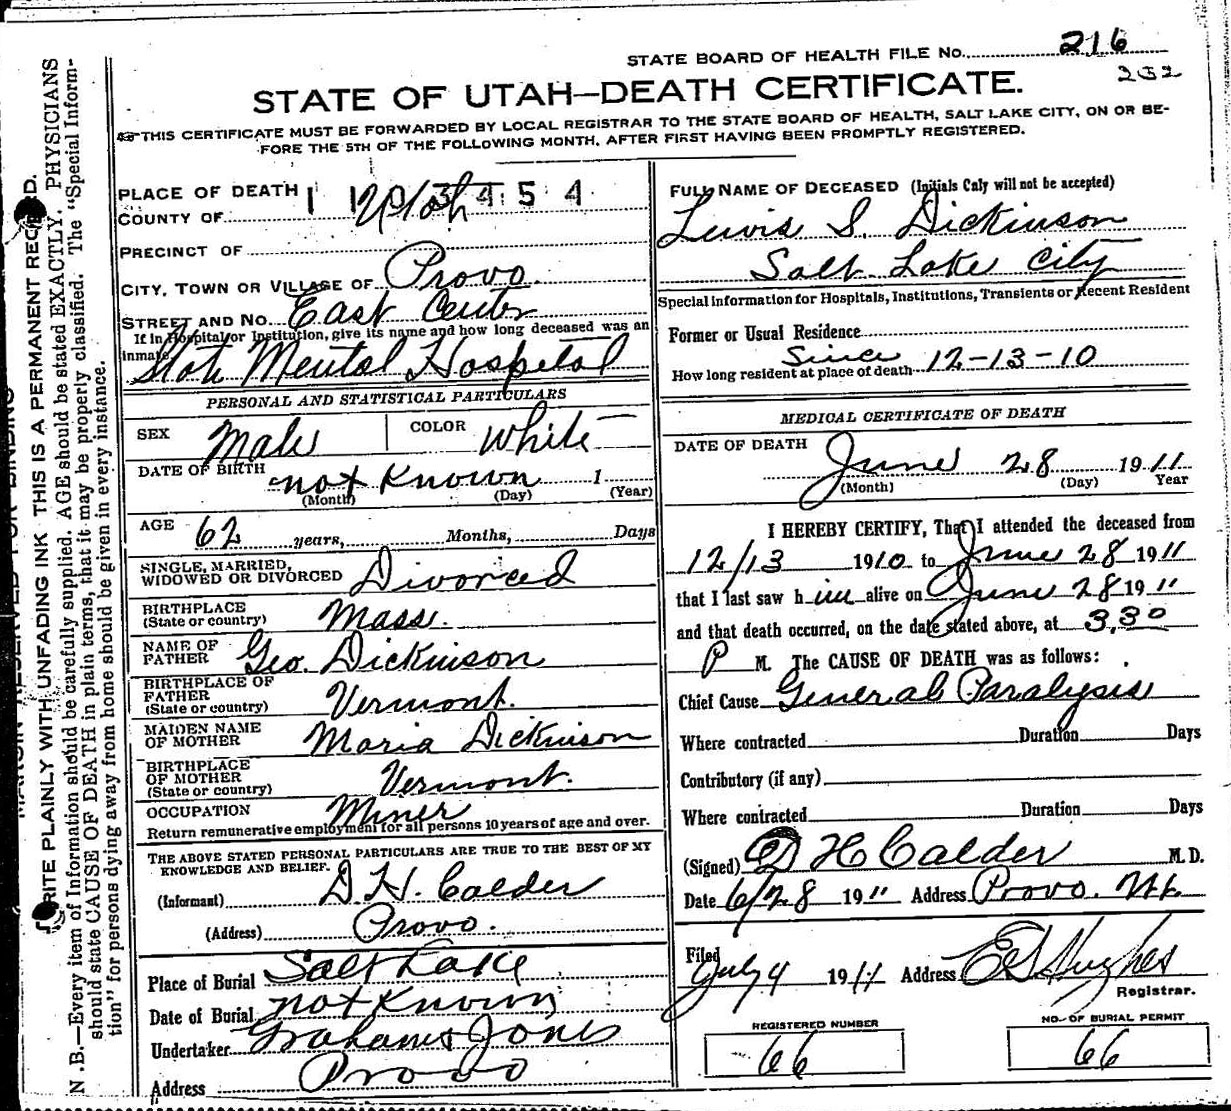 STATE BOARD OF HEALTH FILE No. 216
232
STATE OF UTAH—DEATH CERTIFICATE.
☞THIS CERTIFICATE MUST BE FORWARDED BY LOCAL REGISTRAR TO THE STATE BOARD OF HEALTH, SALT LAKE CITY, ON OR BE-
FORE THE 5TH OF THE FOLLOWING MONTH, AFTER FIRST HAVING BEEN PROMPTLY REGISTERED.
PLACE OF DEATH
COUNTY OF Utah
PRECINCT OF
CITY, TOWN OR VILLAGE OF Provo.
STREET AND No. East Center
If in Hospital or Institution, give its name and how long deceased was an
inmate State Mental Hospital
PERSONAL AND STATISTICAL PARTICULARS
SEX Male COLOR White
DATE OF BIRTH not known 1
(Month) (Day) (Year)
AGE 62 years, Months, Days
SINGLE, MARRIED,
WIDOWED OR DIVORCED Divorced
BIRTHPLACE
(State or country) Mass.
NAME OF
FATHER Geo. Dickinson
BIRTHPLACE OF
FATHER
(State or country) Vermont.
MAIDEN NAME
OF MOTHER Maria Dickinson
BIRTHPLACE
OF MOTHER
(State or country) Vermont.
OCCUPATION Miner
Return remunerative employment for all persons 10 years of age and over.
THE ABOVE STATED PERSONAL PARTICULARS ARE TRUE TO THE BEST OF MY
KNOWLEDGE AND BELIEF.
(Informant) D. H. Calder
(Address) Provo.
Place of Burial Salt Lake
Date of Burial not known
Undertaker Graham & Jones
Address Provo
FULL NAME OF DECEASED (Initials Only will not be accepted)
Lewis S. Dickinson
Salt Lake City
Special Information for Hospitals, Institutions, Transients or Recent Resident
Former or Usual Residence
How long resident at place of death Since 12-13-10
MEDICAL CERTIFICATE OF DEATH
DATE OF DEATH
June 28 1911
(Month) (Day) Year
I HEREBY CERTIFY, That I attended the deceased from
12/13 1910 to June 28 1911
that I last saw him alive on June 28 1911
and that death occurred, on the date stated above, at 3.30
P M. The CAUSE OF DEATH was as follows:
Chief Cause General Paralysis
Where contracted Duration Days
Contributory (if any)
Where contracted Duration Days
(Signed) D H Calder M.D.
Date 6/28 1911 Address Provo. Ut.
Filed
July 4 1911 Address E G Hughes
Registrar.
REGISTERED NUMBER
66
NO. OF BURIAL PERMIT
66
WRITE PLAINLY WITH UNFADING INK THIS IS A PERMANENT RECORD.
N.B.—Every item of Information should be carefully supplied. AGE should be stated EXACTLY. PHYSICIANS
should state CAUSE OF DEATH in plain terms, that it may be properly classified. The "Special Inform-
tion" for persons dying away from home should be given in every instance.